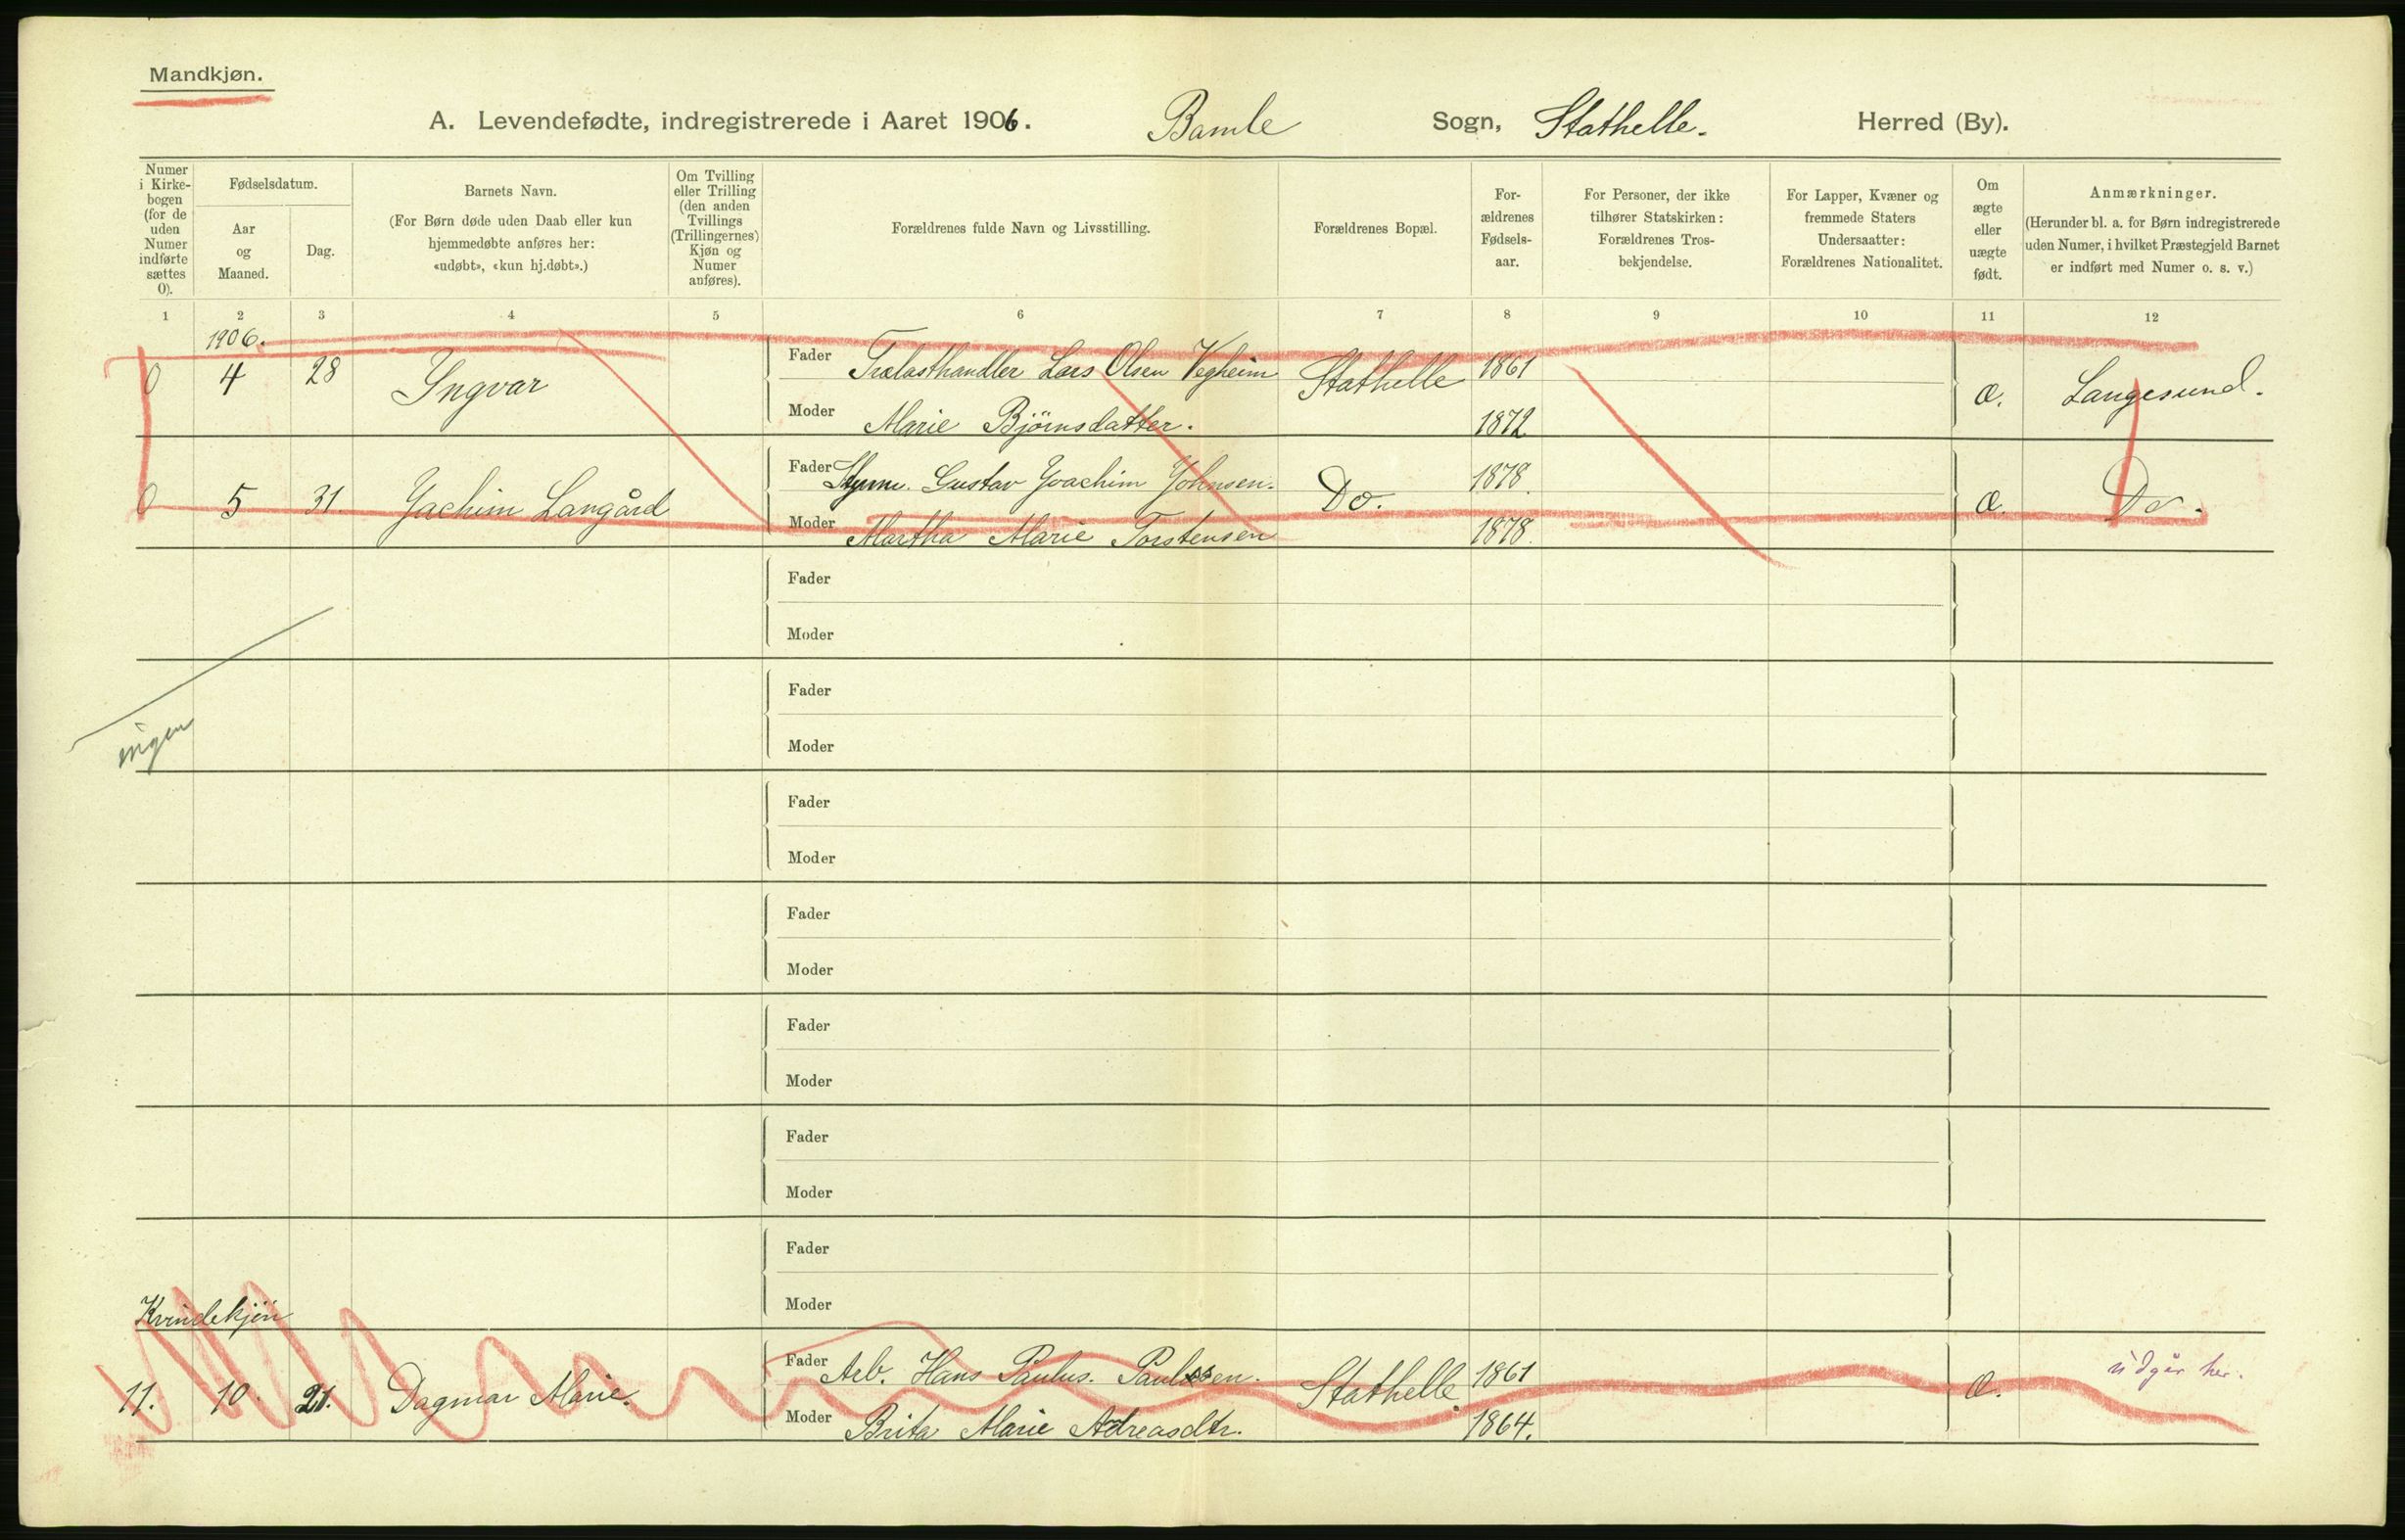 Mandkjøn.
A. Levendefødte, indregistrerede i Aaret 1906. Bamle Sogn, Stathelle. Herred (By).
Numer i Kirke-bogen (for de uden Numer indførte sættes 0).
Fødselsdatum.
Aar og Maaned.
Dag.
Barnets Navn.
(For Børn døde uden Daab eller kun
hjemmedøbte anføres her:
«udøbt», «kun hj.døbt».)
Om Tvilling
eller Trilling
(den anden
Tvillings
(Trillingernes)
Kjøn og
Numer
anføres).
Forældrenes fulde Navn og Livsstilling.
Forældrenes Bopæl.
For-
ældrenes
Fødsels-
aar.
For Personer, der ikke
tilhører Statskirken:
Forældrenes Tros-
bekjendelse.
For Lapper, Kvæner og
fremmede Staters
Undersaatter:
Forældrenes Nationalitet.
Om
ægte
eller
uægte
født.
Anmærkninger.
(Herunder bl. a. for Børn indregistrerede
uden Numer, i hvilket Præstegjeld Barnet
er indført med Numer o. s. v.)
1 2 3 4 5 6 7 8 9 10 11 12
1906.
0 4 28 Yngvar Fader Trælasthandler Lars Olsen Vegheim Stathelle 1861 æ. Langesund.
Moder Marie Bjørnsdatter. 1872
0 5 31. Yachim Langård Fader Styrm. Gustav Yoachim Johnsen. Do. 1878. æ. Do.
Moder Martha Marie Torstensen 1878.
Fader
Moder
ingen
Fader
Moder
Fader
Moder
Fader
Moder
Fader
Moder
Fader
Moder
Fader
Moder
Kvindekjøn
11. 10. 21. Dagmar Marie. Fader Arb. Hans Paulus. Paulssen. Stathelle. 1861 æ. udgår her.
Moder Brita Marie Adreasdtr. 1864.